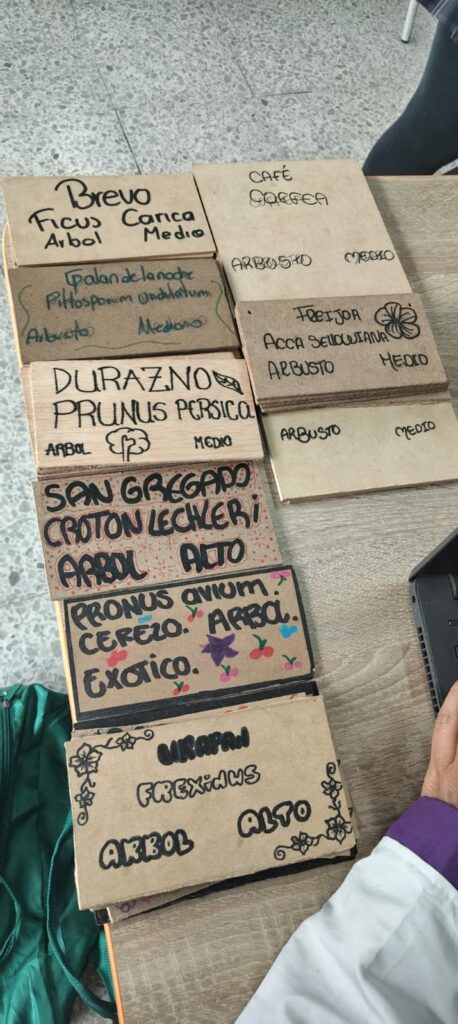 Brevo
Ficus Carica
Arbol Medio
CAFÉ
COFFEA
ARBUSTO MEDIO
Galan de la noche
Pittosporum undulatum
Arbusto Mediano
FEIJOA
ACCA SELLOWIANA
ARBUSTO MEDIO
DURAZNO
PRUNUS PERSICA
ARBOL MEDIO
ARBUSTO MEDIO
SAN GREGADO
CROTON LECHLERI
ARBOL ALTO
PRONUS avium.
CEREZO. ARBOL.
EXOTICO.
URAPAN
FREXINUS
ARBOL ALTO